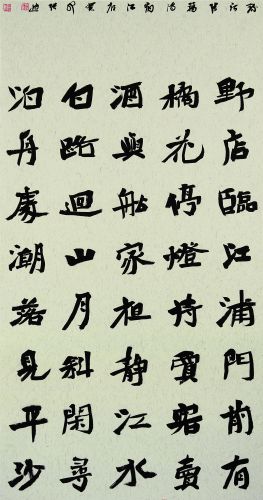 野店臨江浦門前有
橘花停燈待賈賣
酒與船家静江水
白路迴山月斜閑尋
泊舟處潮落見平沙